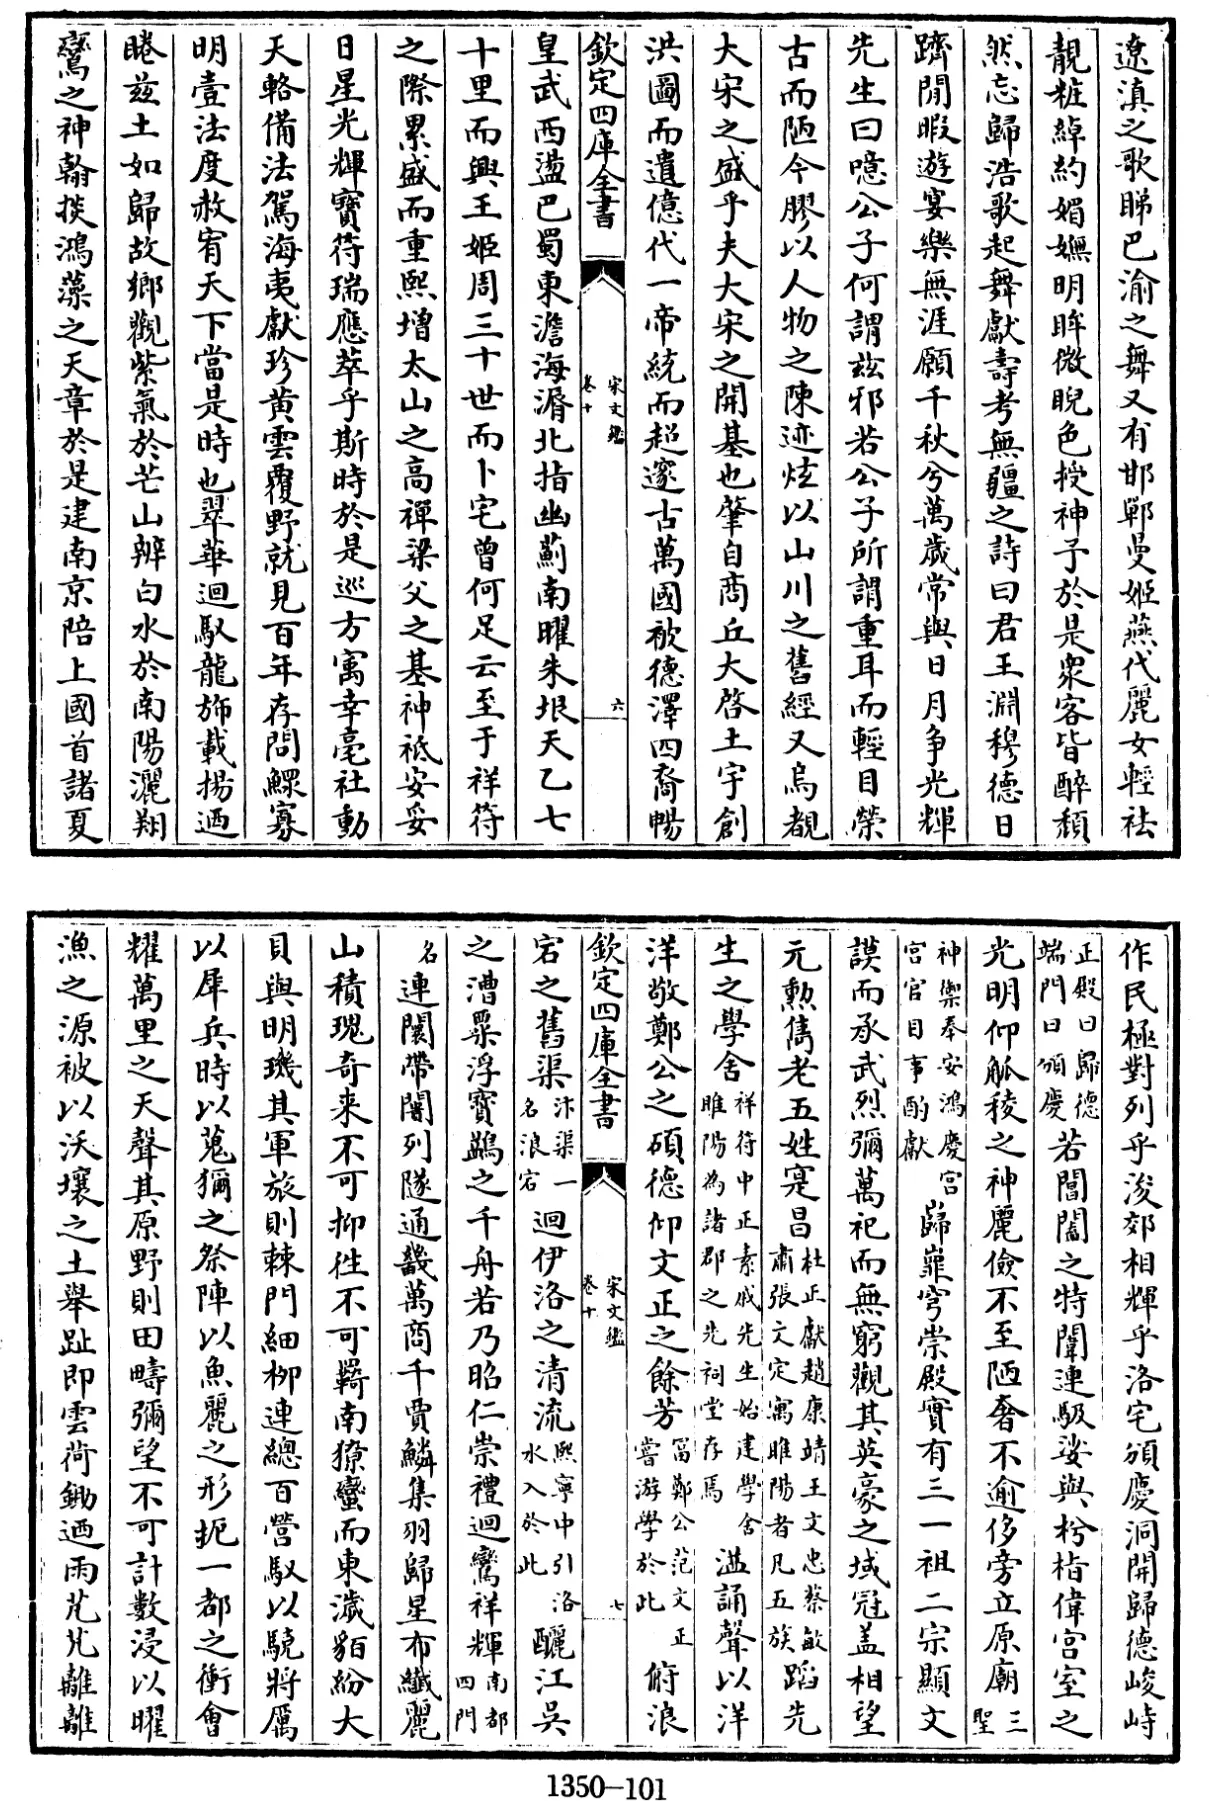 遼滇之歌睇巴渝之舞又有邯鄲曼姬燕代麗女輕袪
靚粧綽約媚嫵明眸微睨色授神予於是衆客皆醉頹
然忘歸浩歌起舞獻壽考無疆之詩曰君王淵穆德日
躋閒暇遊宴樂無涯願千秋兮萬歲常與日月争光輝
先生曰噫公子何謂兹邪若公子所謂重耳而輕目榮
古而陋今膠以人物之陳迹炫以山川之舊經又烏覩
大宋之盛乎夫大宋之開基也肇自商丘大啓土宇創
洪圖而遺億代一帝統而超邃古萬國被德澤四裔暢
欽定四庫全書
宋文鑑
卷十
六
皇武西盪巴蜀東澹海漘北指幽薊南曜朱垠天乙七
十里而興王姬周三十世而卜宅曾何足云至于祥符
之際累盛而重熙增太山之高禪梁父之基神祗安妥
日星光輝寳符瑞應萃乎斯時於是巡方寓幸亳社動
天輅備法駕海夷獻珍黄雲覆野就見百年存問鰥寡
明壹法度赦宥天下當是時也翠華迴馭龍斾載揚迺
睠兹土如歸故鄉觀紫氣於芒山辨白水於南陽灑翔
鸞之神翰掞鴻藻之天章於是建南京陪上國首諸夏
作民極對列乎浚郊相輝乎洛宅頒慶洞開歸德峻峙
正殿曰歸德
端門曰頒慶
若閶闔之特闈連馺娑與枍栺偉宮室之
光明仰觚稜之神麗儉不至陋奢不逾侈旁立原廟
三
聖
神禦奉安鴻慶宮
宮官日事酌獻
巋嶵穹崇殿實有三一祖二宗顯文
謨而承武烈彌萬祀而無窮觀其英豪之域冠盖相望
元勲雋老五姓寔昌
杜正獻趙康靖王文忠蔡敏
肅張文定寓睢陽者凡五族
蹈先
生之學舍
祥符中正素戚先生始建學舍
睢陽為諸郡之先祠堂存焉
溢誦聲以洋
洋敬鄭公之碩德仰文正之餘芳
富鄭公范文正
嘗游學於此
俯浪
欽定四庫全書
宋文鑑
卷十
七
宕之舊渠
汴渠一
名浪宕
迴伊洛之清流
熙寧中引洛
水入於此
釃江吳
之漕粟浮寳鷁之千舟若乃昭仁崇禮迴鸞祥輝
南都
四門
名
連闤帶闠列隧通畿萬商千賈鱗集羽歸星布纎麗
山積瑰奇来不可抑徃不可羇南獠蠻而東濊貊紛大
貝與明璣其軍旅則棘門細栁連總百營馭以驍將厲
以犀兵時以蒐獮之祭陣以魚麗之形扼一都之衝會
耀萬里之天聲其原野則田疇彌望不可計數浸以曜
漁之源被以沃壤之土舉趾即雲荷鋤迺雨芃芃離離
1350-101